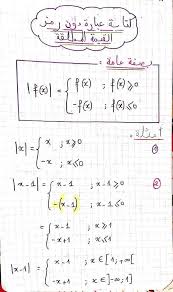 كتابة عبارة دون رمز
القيمة المطلقة
صيغة عامة :
|f(x)| = { f(x) ; f(x) ⩾ 0
-f(x) ; f(x) ⩽ 0
أمثلة :
|x| = { x ; x ⩾ 0
-x ; x ⩽ 0
|x-1| = { x-1 ; x-1 ⩾ 0
-(x-1) ; x-1 ⩽ 0
= { x-1 ; x ⩾ 1
-x+1 ; x ⩽ 1
|x-1| = { x-1 ; x ∈ [1; +∞[
-x+1 ; x ∈ ]-∞; 1]